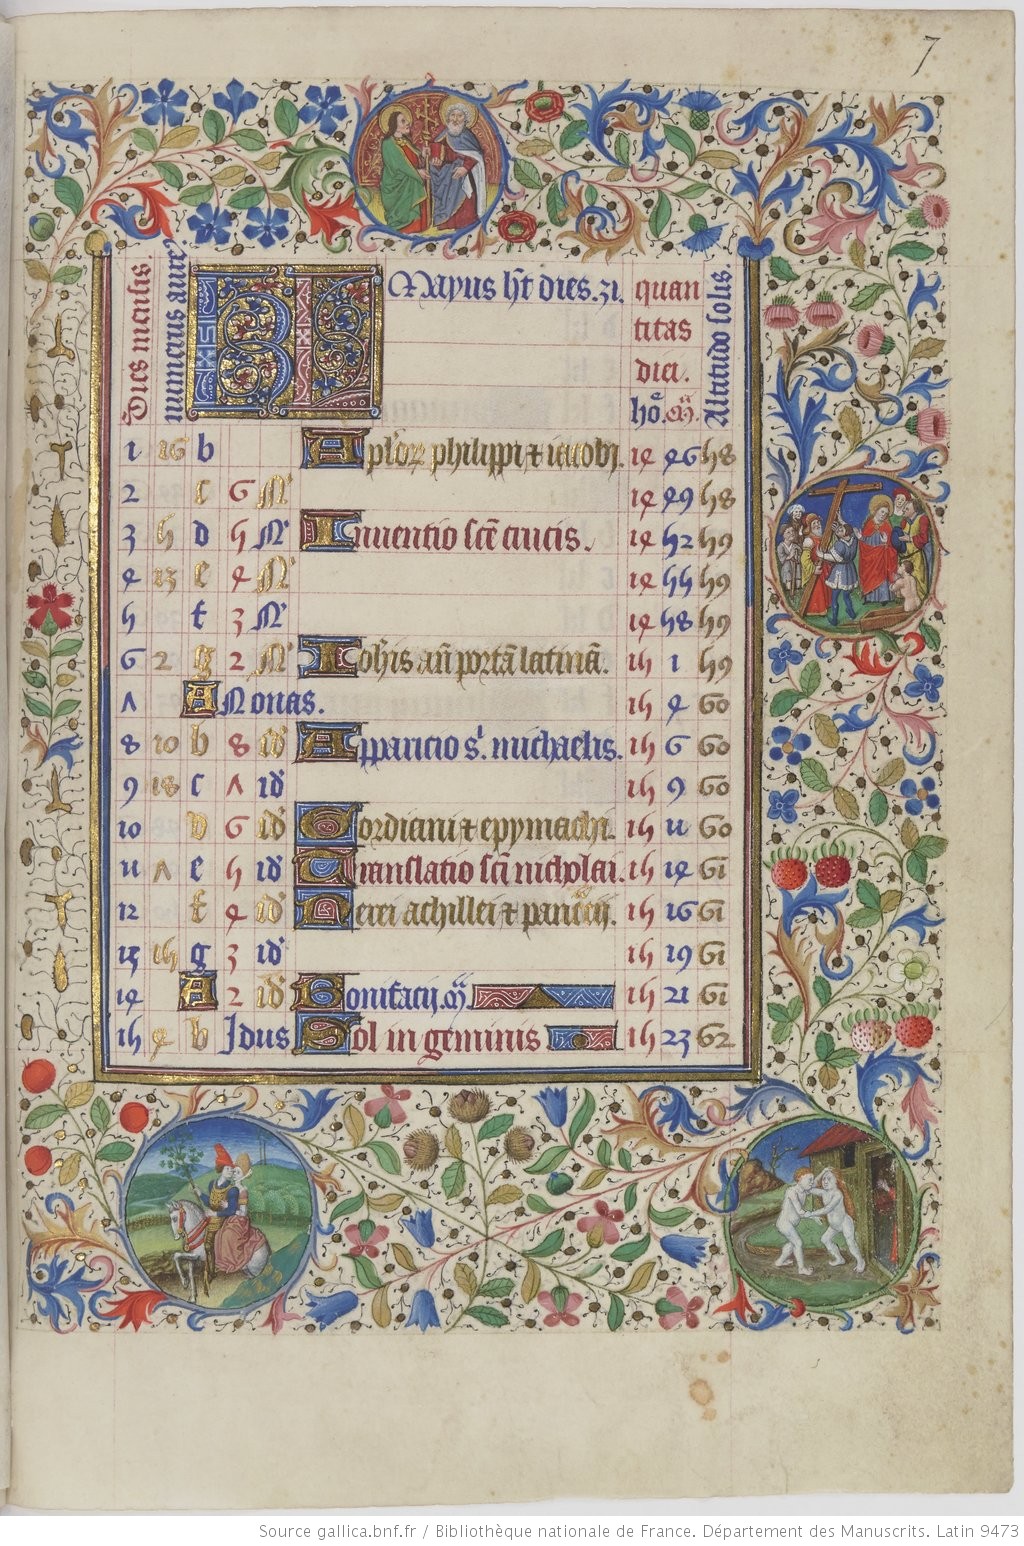 7
Dies mensis.
numerus aure9
KL
Mayus ht dies. 31.
quan
titas
diei.
ho. m.
Altitudo solis.
1 16 b Aplor philippi & iacobi. 14 46 58
2 c 6 N 14 49 58
3 5 d 5 N Inventio sce crucis. 14 52 59
4 13 e 4 N 14 55 59
5 f 3 N 14 58 59
6 2 g 2 N Iohis an porta latina. 15 1 59
7 A Nonas. 15 4 60
8 10 b 8 id Apparicio s. michaelis. 15 6 60
9 18 c 7 id 15 9 60
10 d 6 id Gordiani & epymachi. 15 11 60
11 7 e 5 id Translatio sci nicholai. 15 14 61
12 f 4 id Nerei achillei & pancrcij. 15 16 61
13 15 g 3 id 15 19 61
14 A 2 id Bonifacij. m. 15 21 61
15 4 b Idus Sol in geminis 15 23 62
Source gallica.bnf.fr / Bibliothèque nationale de France. Département des Manuscrits. Latin 9473